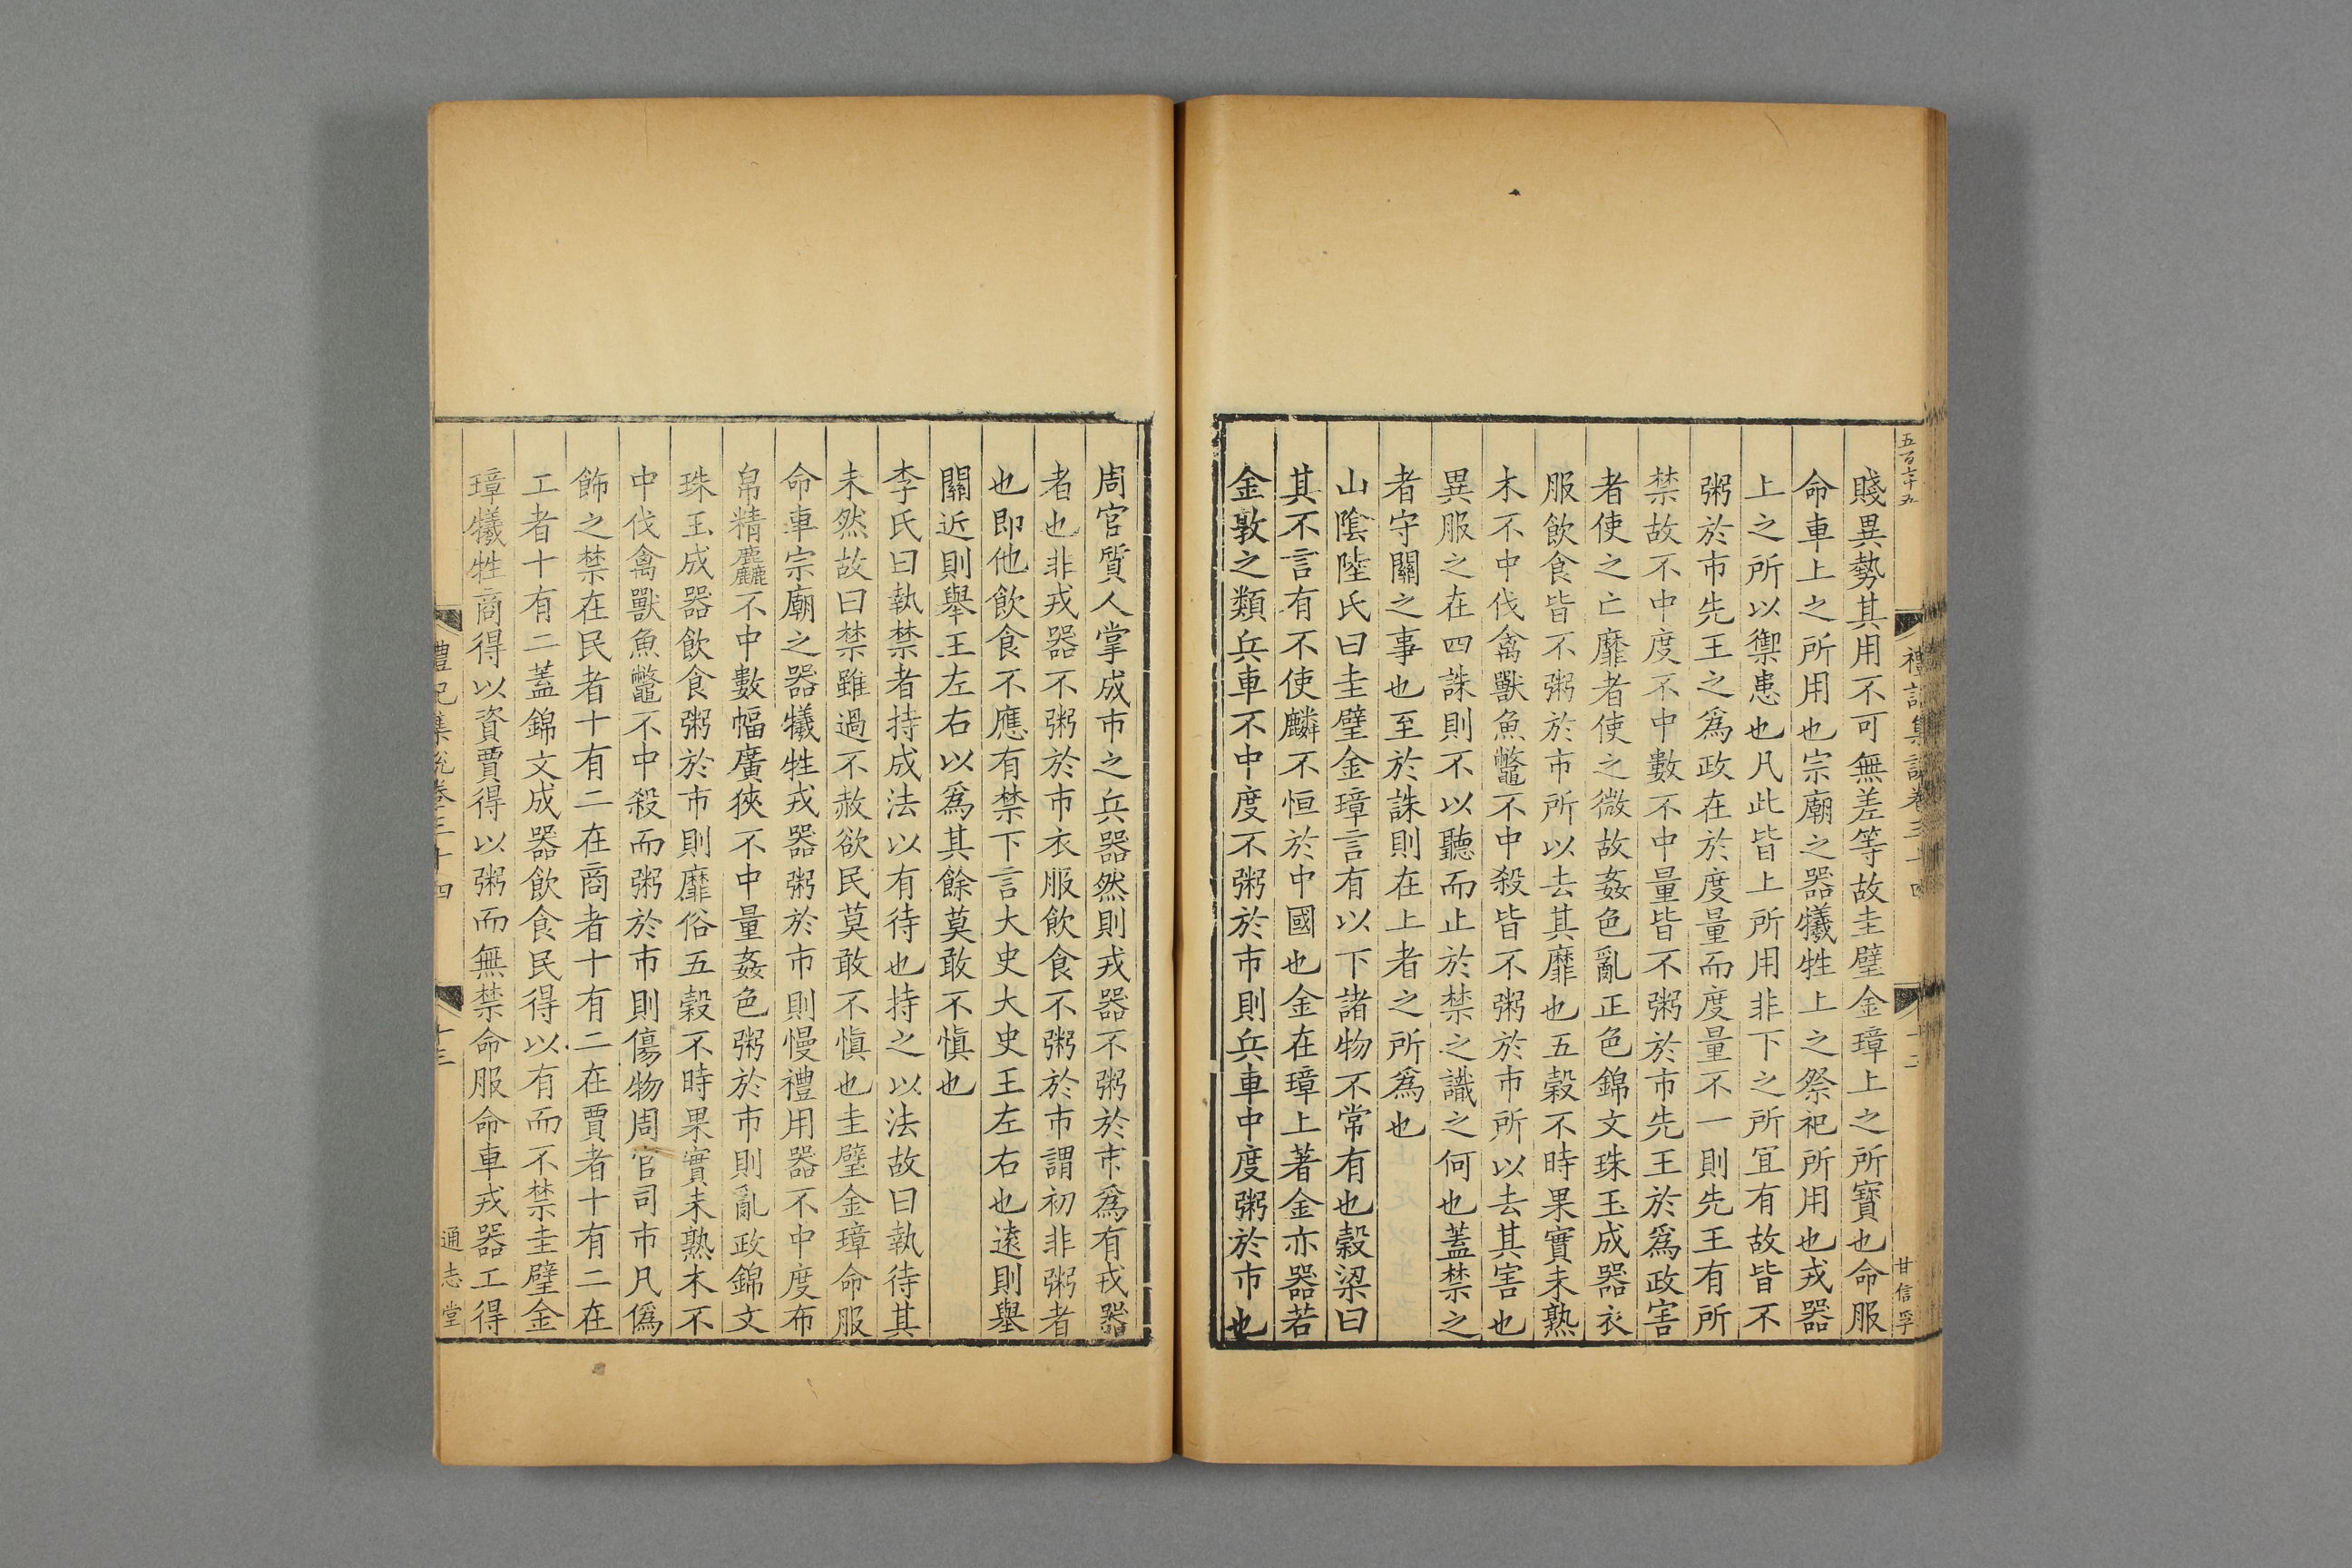 五百六十五
禮記集說卷三十四
十二
甘信孚
賤異勢其用不可無差等故圭璧金璋上之所寶也命服
命車上之所用也宗廟之器犧牲上之祭祀所用也戎器
上之所以禦患也凡此皆上所用非下之所宜有故皆不
粥於市先王之爲政在於度量而度量不一則先王有所
禁故不中度不中數不中量皆不粥於市先王於爲政害
者使之亡靡者使之微故姦色亂正色錦文珠玉成器衣
服飲食皆不粥於市所以去其靡也五穀不時果實未熟
木不中伐禽獸魚鼈不中殺皆不粥於市所以去其害也
異服之在四誅則不以聽而止於禁之識之何也蓋禁之
者守關之事也至於誅則在上者之所爲也
山陰陸氏曰圭璧金璋言有以下諸物不常有也穀梁曰
其不言有不使麟不恒於中國也金在璋上著金亦器若
金敦之類兵車不中度不粥於市則兵車中度粥於市也
周官質人掌成市之兵器然則戎器不粥於市爲有戎器
者也非戎器不粥於市衣服飲食不粥於市謂初非粥者
也即他飲食不應有禁下言大史大史王左右也遠則舉
關近則舉王左右以爲其餘莫敢不愼也
李氏曰執禁者持成法以有待也持之以法故曰執待其
未然故曰禁雖過不赦欲民莫敢不愼也圭璧金璋命服
命車宗廟之器犧牲戎器粥於市則慢禮用器不中度布
帛精麤不中數幅廣狹不中量姦色粥於市則亂政錦文
珠玉成器飲食粥於市則靡俗五穀不時果實未熟木不
中伐禽獸魚鼈不中殺而粥於市則傷物周官司市凡僞
飾之禁在民者十有二在商者十有二在賈者十有二在
工者十有二蓋錦文成器飲食民得以有而不禁圭璧金
璋犧牲商得以資賈得以粥而無禁命服命車戎器工得
禮記集說卷三十四
十三
通志堂